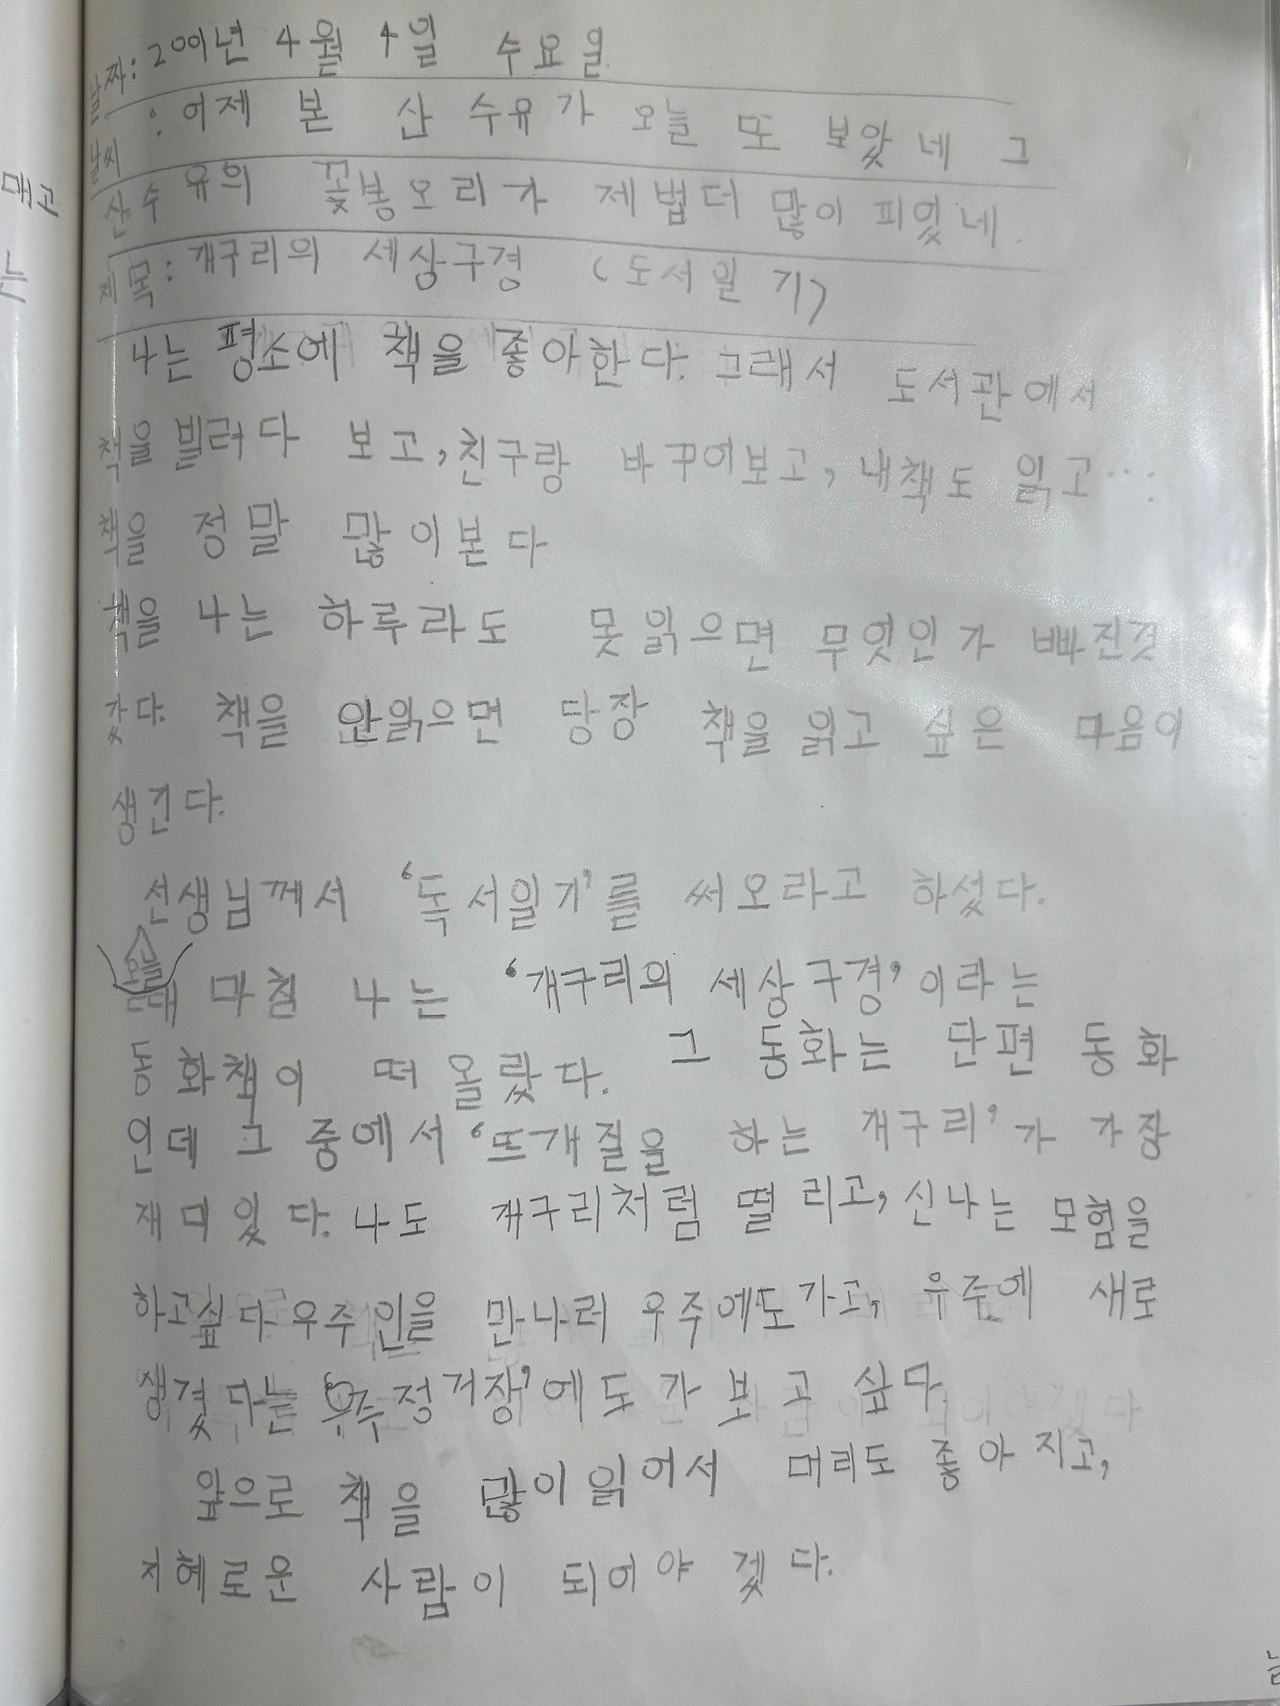 매고
는
날짜: 2001년 4월 4일 수요일
날씨: 어제 본 산수유가 오늘 또 보았네 그
산수유의 꽃봉오리가 제법더 많이 피었네.
제목: 개구리의 세상구경 (도서일기)
나는 평소에 책을 좋아한다. 그래서 도서관에서
책을 빌려다 보고, 친구랑 바꾸어보고, 내책도 읽고…
책을 정말 많이본다
책을 나는 하루라도 못읽으면 무엇인가 빠진것
갔다. 책을 안읽으면 당장 책을 읽고 싶은 마음이
생긴다.
선생님께서 '독서일기'를 써오라고 하셨다.
오늘
때 마침 나는 '개구리의 세상구경'이라는
동화책이 떠올랐다. 그 동화는 단편 동화
인데 그 중에서 '뜨개질을 하는 개구리'가 가장
재미있다. 나도 개구리처럼 떨리고, 신나는 모험을
하고싶다 우주인을 만나러 우주에도가고, 우주에 새로
생겼다는 '우주정거장'에도 가보고 싶다.
앞으로 책을 많이 읽어서 머리도 좋아지고,
지혜로운 사람이 되어야 겠다.